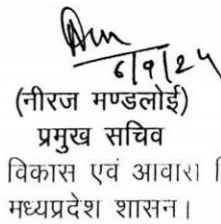 6/9/24
(नीरज मण्डलोई)
प्रमुख सचिव
विकास एवं आवास
मध्यप्रदेश शासन।